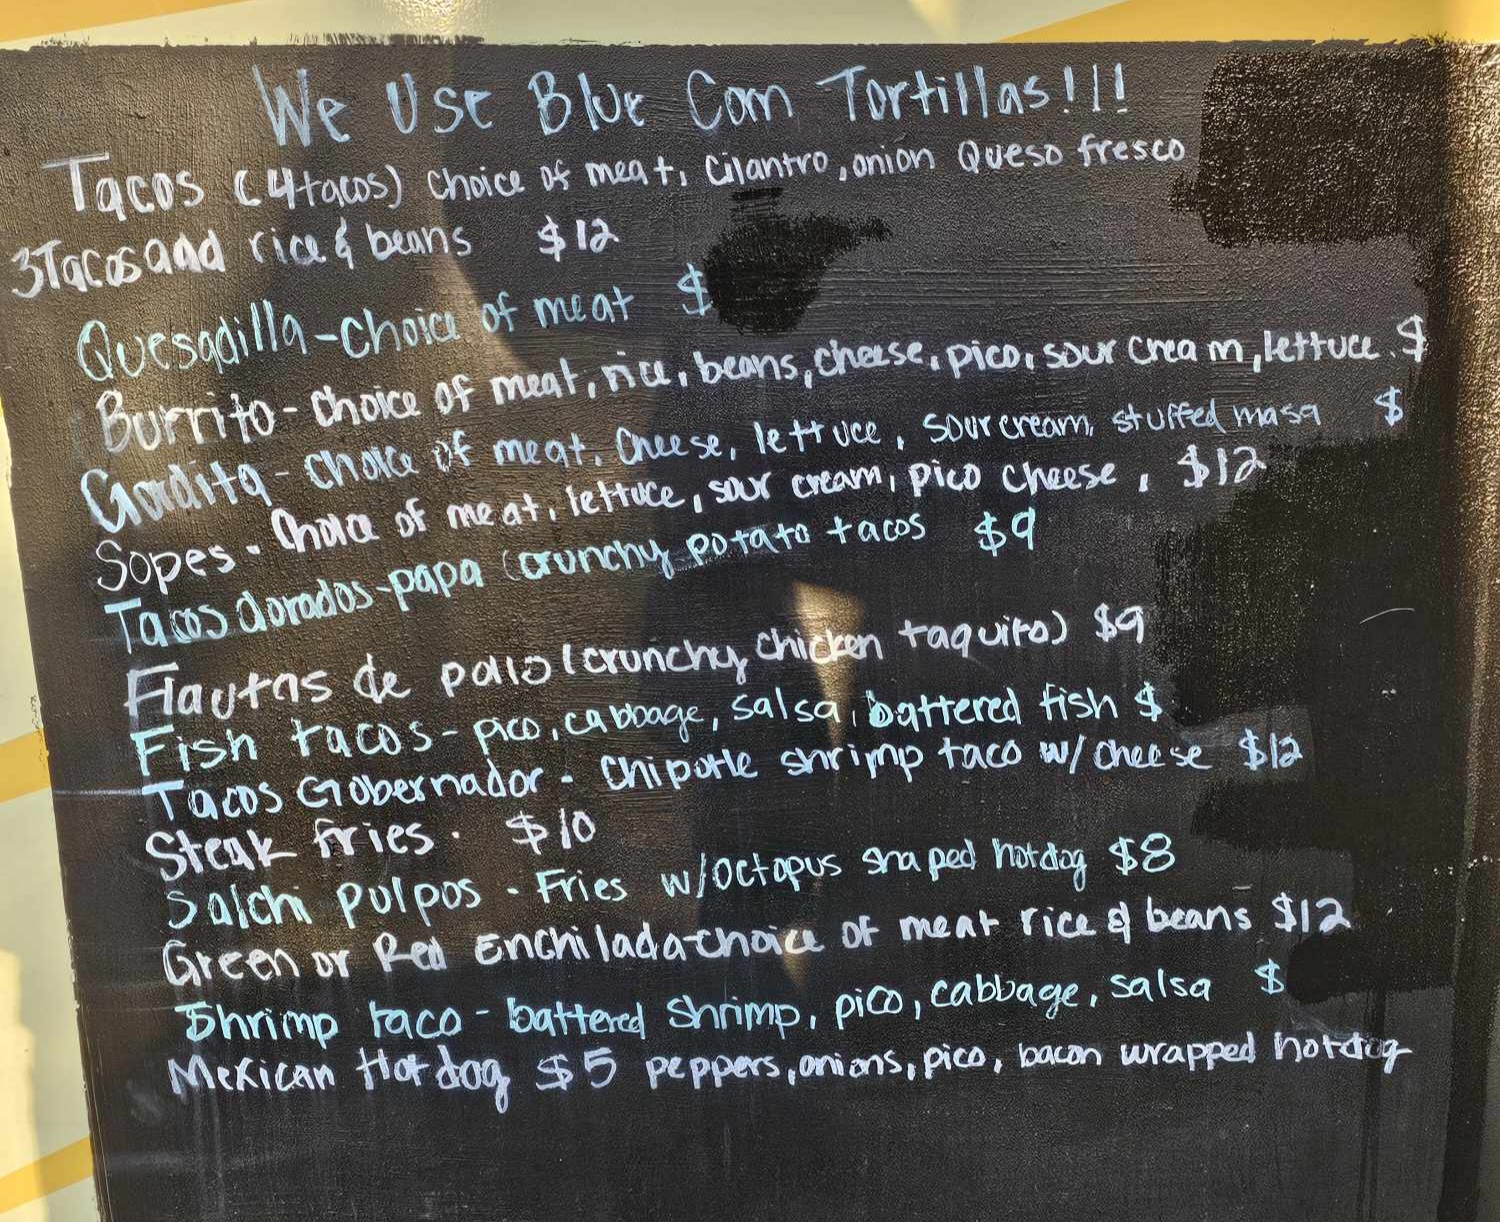 We Use Blue Corn Tortillas!!!
Tacos (4tacos) choice of meat, cilantro, onion Queso fresco
3Tacos and rice & beans $12
Quesadilla - choice of meat $
Burrito - choice of meat, rice, beans, cheese, pico, sour cream, lettuce. $
Gordita - choice of meat, cheese, lettuce, sour cream, stuffed masa $
Sopes - choice of meat, lettuce, sour cream, pico cheese, $12
Tacos dorados-papa (crunchy potato tacos $9
Flautas de pollo (crunchy chicken taquito) $9
Fish tacos - pico, cabbage, salsa, battered fish $
Tacos Gobernador - chipotle shrimp taco w/ cheese $12
Steak fries. $10
Salchi pulpos - Fries w/octopus shaped hotdog $8
Green or Red Enchilada-choice of meat rice & beans $12
Shrimp taco - battered shrimp, pico, cabbage, salsa $
Mexican Hotdog $5 peppers, onions, pico, bacon wrapped hotdog